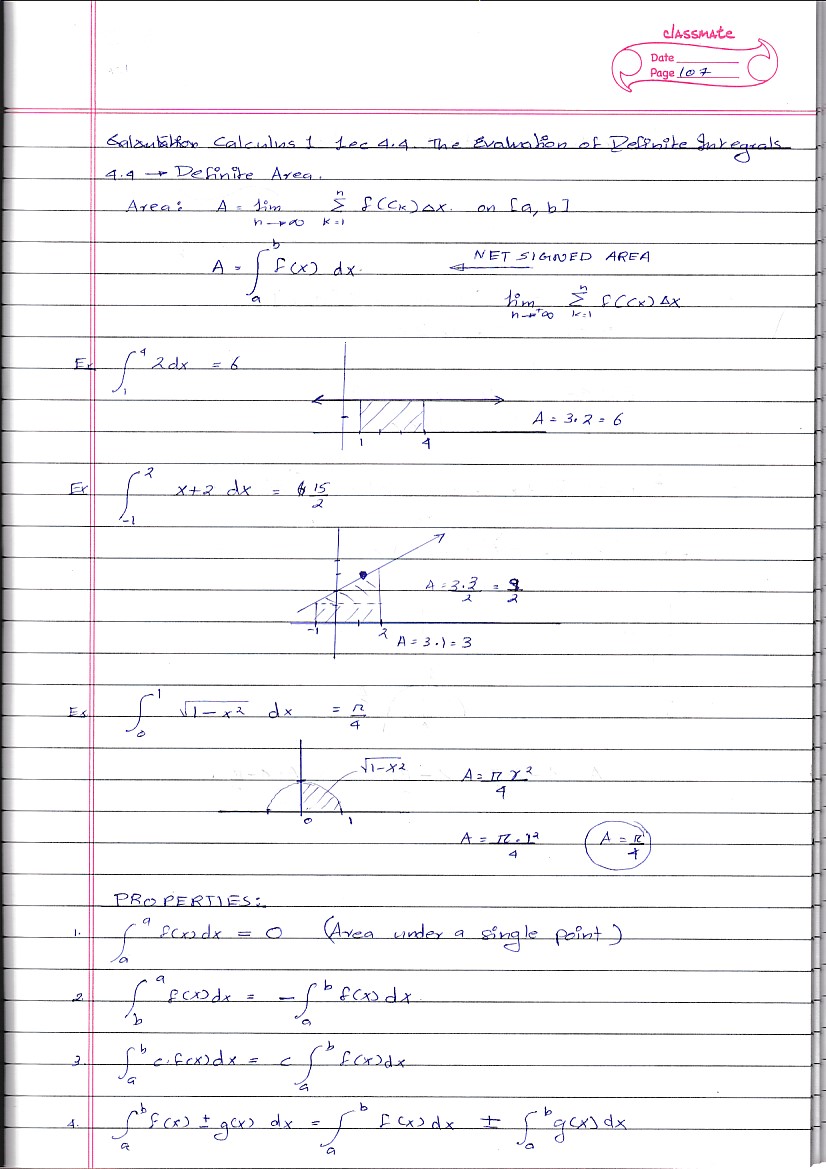 classmate
Date
Page 107
Calculus 1 Lec 4.4 The Evaluation of Definite Integrals
4.4 → Definite Area.
Area: A = lim n→∞ Σ k=1 n f(Ck)Δx. on [a, b]
A = ∫ a b f(x) dx. ← NET SIGNED AREA
lim n→+∞ Σ k=1 n f(Cx)Δx
Ex ∫ 1 4 2dx = 6
A = 3·2 = 6
1 4
Ex ∫ -1 2 x+2 dx = 15/2
A = 3·3/2 = 9/2
-1 2 A = 3·1 = 3
Ex ∫ 0 1 √1-x² dx = π/4
√1-x² A = πr²/4
0 1
A = π·1²/4 A = π/4
PROPERTIES:
1. ∫ a a f(x)dx = 0 (Area under a single point)
2. ∫ b a f(x)dx = -∫ a b f(x)dx.
3. ∫ a b c·f(x)dx = c ∫ a b f(x)dx
4. ∫ a b f(x) ± g(x) dx = ∫ a b f(x)dx ± ∫ a b g(x)dx